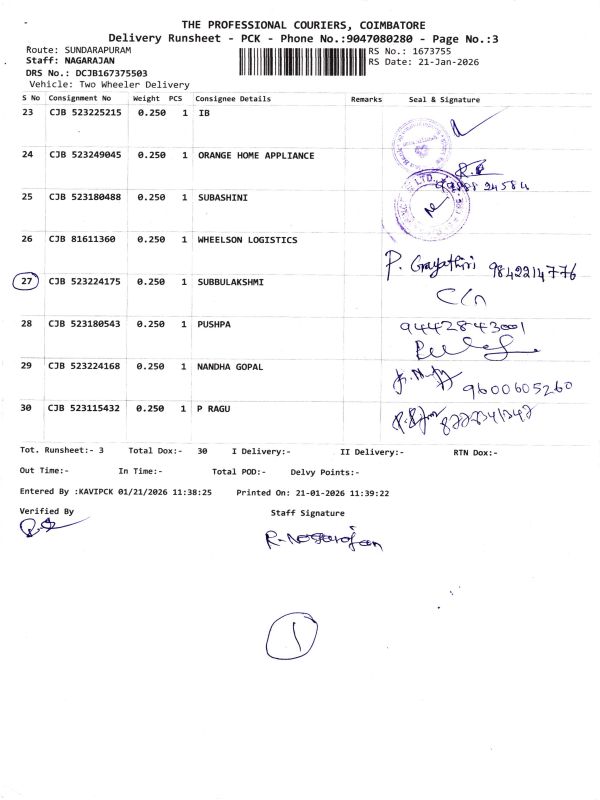 THE PROFESSIONAL COURIERS, COIMBATORE
Delivery Runsheet - PCK - Phone No.:9047080280 - Page No.:3
Route: SUNDARAPURAM
RS No.: 1673755
Staff: NAGARAJAN
RS Date: 21-Jan-2026
DRS No.: DCJB167375503
Vehicle: Two Wheeler Delivery
S No Consignment No Weight PCS Consignee Details Remarks Seal & Signature
23 CJB 523225215 0.250 1 IB
24 CJB 523249045 0.250 1 ORANGE HOME APPLIANCE
25 CJB 523180488 0.250 1 SUBASHINI
26 CJB 81611360 0.250 1 WHEELSON LOGISTICS
P. Gayathiri 9842214776
27 CJB 523224175 0.250 1 SUBBULAKSHMI
C/n
28 CJB 523180543 0.250 1 PUSHPA
9442843001
29 CJB 523224168 0.250 1 NANDHA GOPAL
9600605260
30 CJB 523115432 0.250 1 P RAGU
Tot. Runsheet:- 3 Total Dox:- 30 I Delivery:- II Delivery:- RTN Dox:-
Out Time:- In Time:- Total POD:- Delvy Points:-
Entered By :KAVIPCK 01/21/2026 11:38:25 Printed On: 21-01-2026 11:39:22
Verified By Staff Signature
R. Nagarajan
1